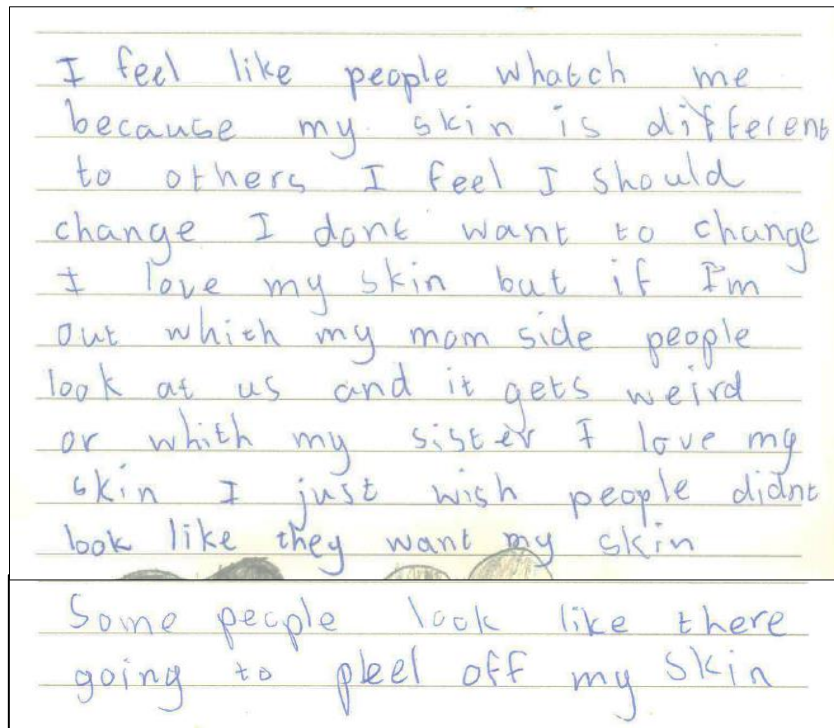 I feel like people whatch me
because my skin is different
to others I feel I should
change I dont want to change
I love my skin but if I'm
out whith my mom side people
look at us and it gets weird
or whith my sister I love my
skin I just wish people didnt
look like they want my skin
Some people look like there
going to pleel off my skin